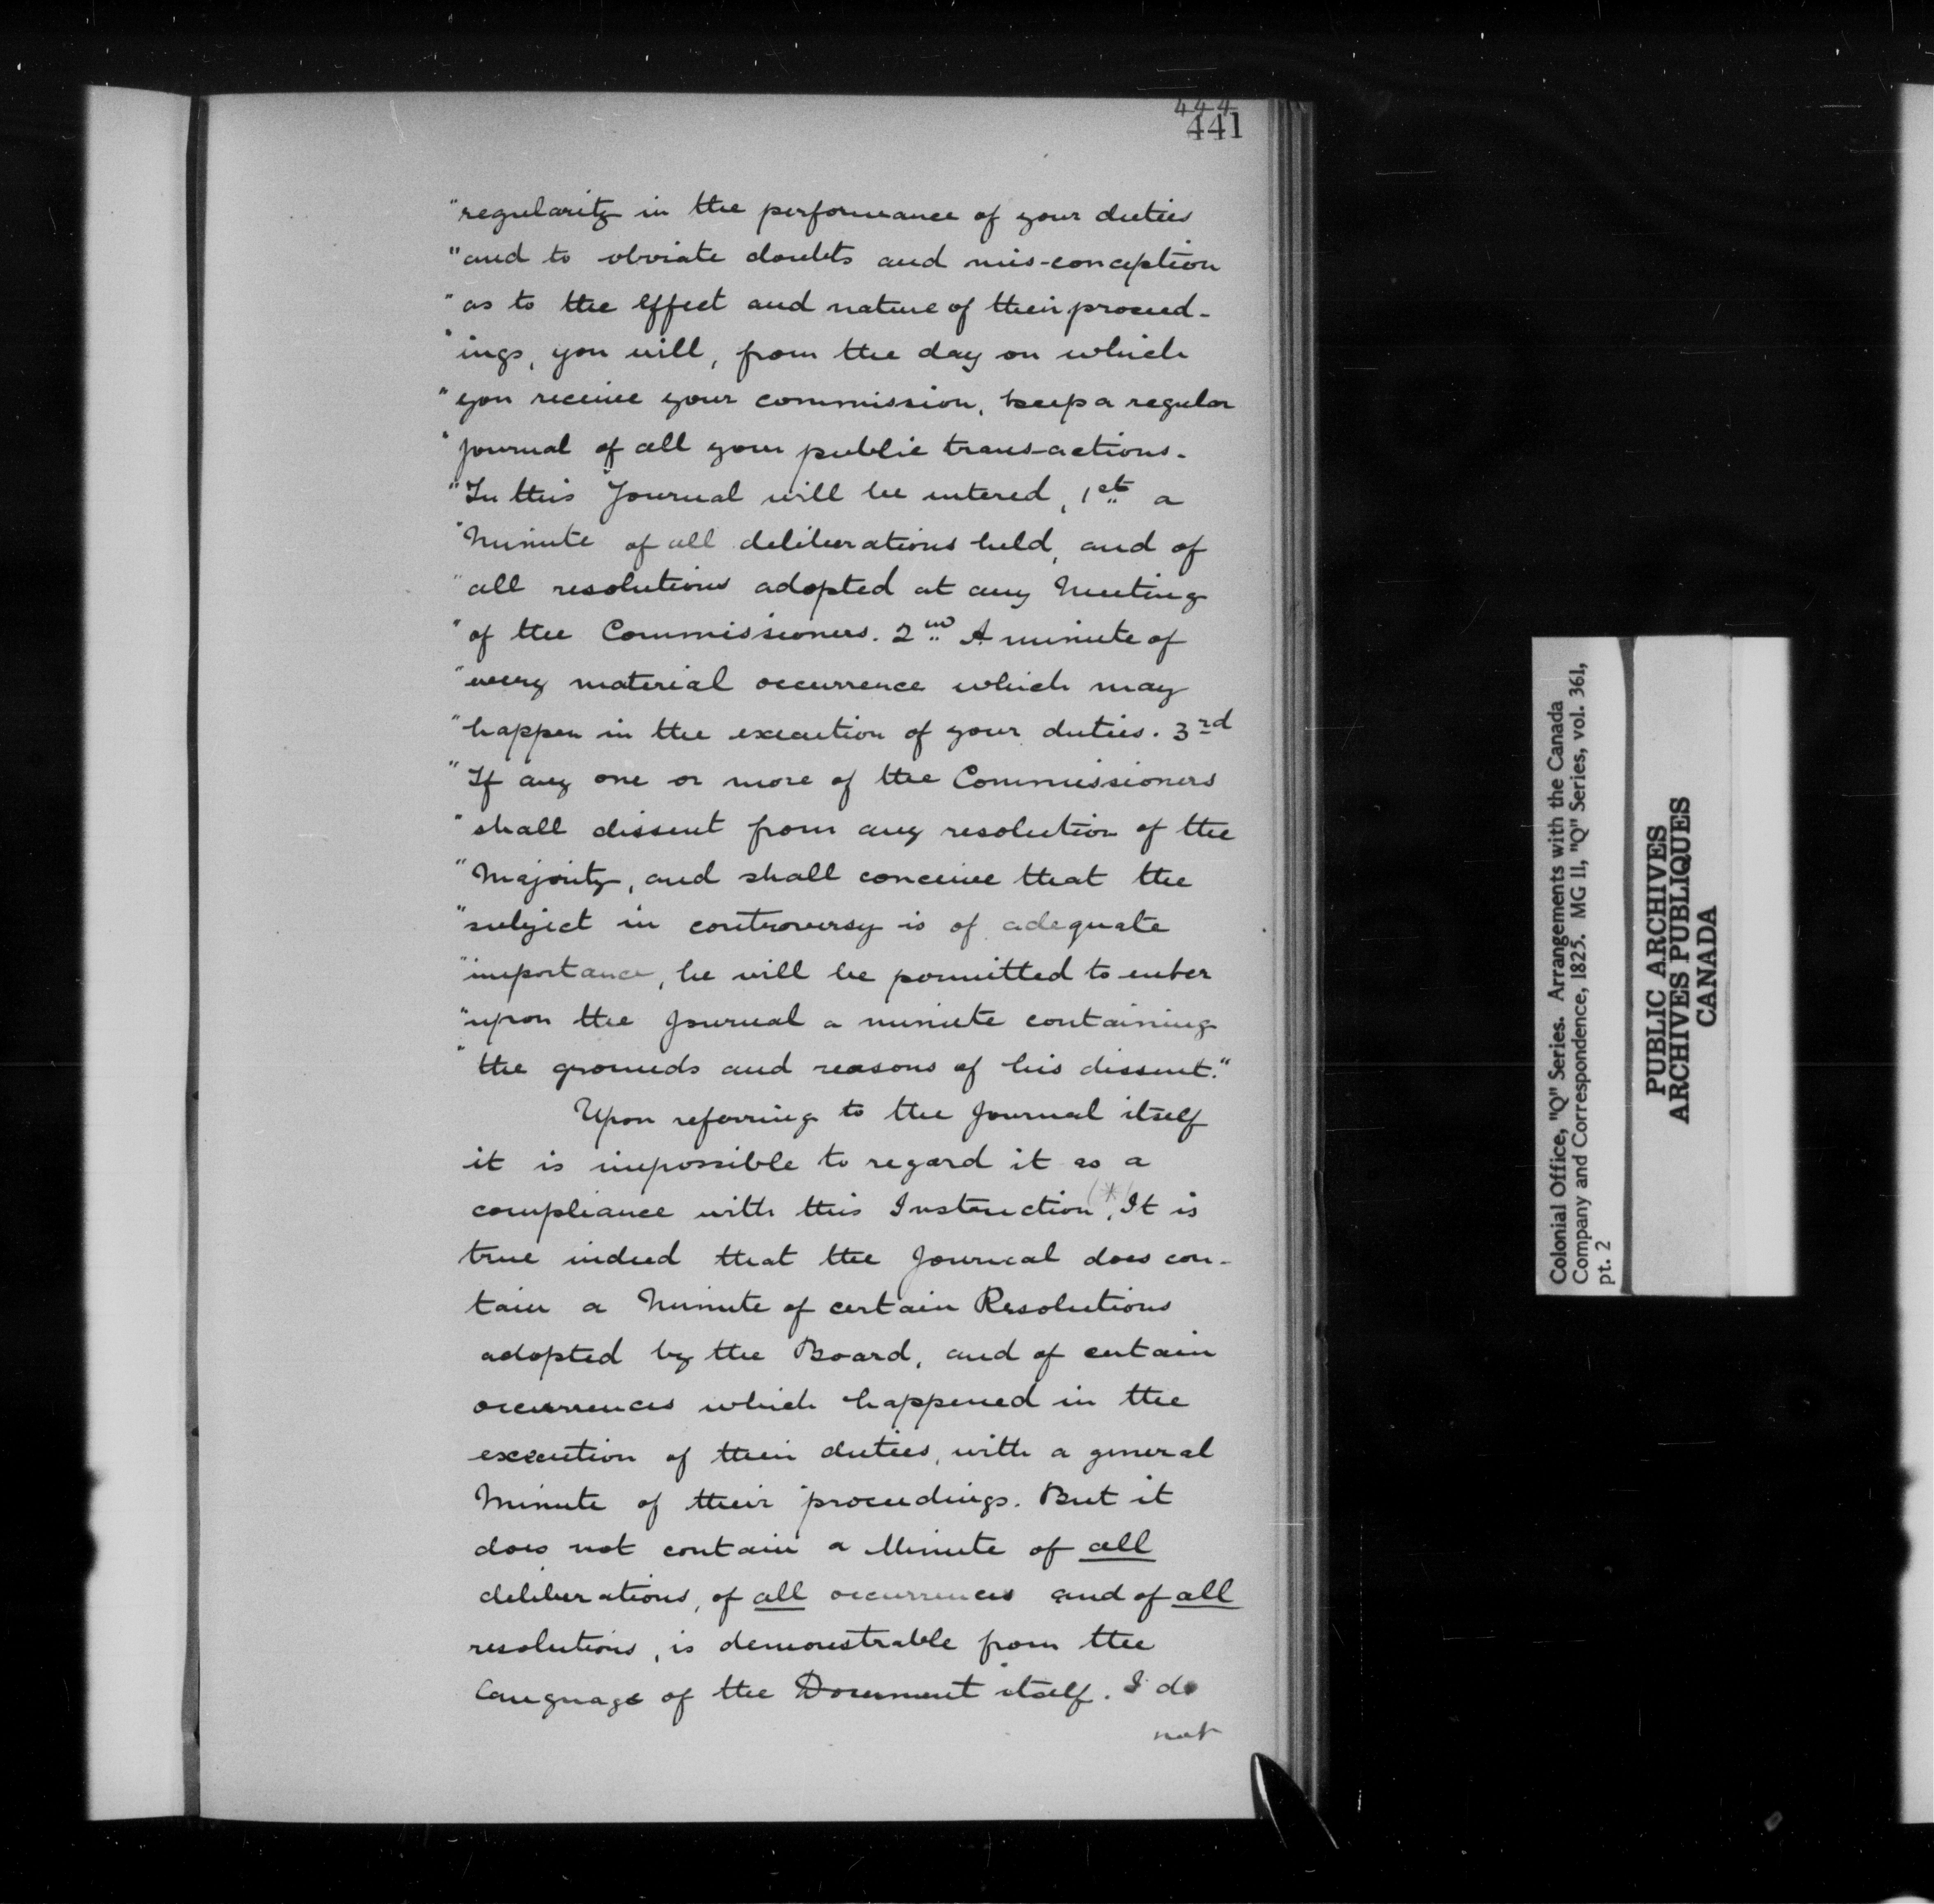 444
441
"regularity in the performance of your duties
"and to obviate doubts and mis-conception
"as to the effect and nature of their proceed-
"ings, you will, from the day on which
"you receive your commission, keep a regular
"journal of all your public transactions.
"In this Journal will be entered, 1st a
"Minute of all deliberations held, and of
"all resolutions adopted at any Meeting
"of the Commissioners. 2nd A minute of
"every material occurrence which may
"happen in the execution of your duties. 3rd
"If any one or more of the Commissioners
"shall dissent from any resolution of the
"Majority, and shall conceive that the
"subject in controversy is of adequate
"importance, he will be permitted to enter
"upon the Journal a minute containing
"the grounds and reasons of his dissent."
Upon referring to the Journal itself
it is impossible to regard it as a
compliance with this Instruction(*). It is
true indeed that the Journal does con-
tain a Minute of certain Resolutions
adopted by the Board, and of certain
occurrences which happened in the
execution of their duties, with a general
Minute of their proceedings. But it
does not contain a Minute of all
deliberations, of all occurrences and of all
resolutions, is demonstrable from the
language of the Document itself. I do
not
Colonial Office, "Q" Series. Arrangements with the Canada
Company and Correspondence, 1825. MG 11, "Q" Series, vol. 361,
pt. 2
PUBLIC ARCHIVES
ARCHIVES PUBLIQUES
CANADA